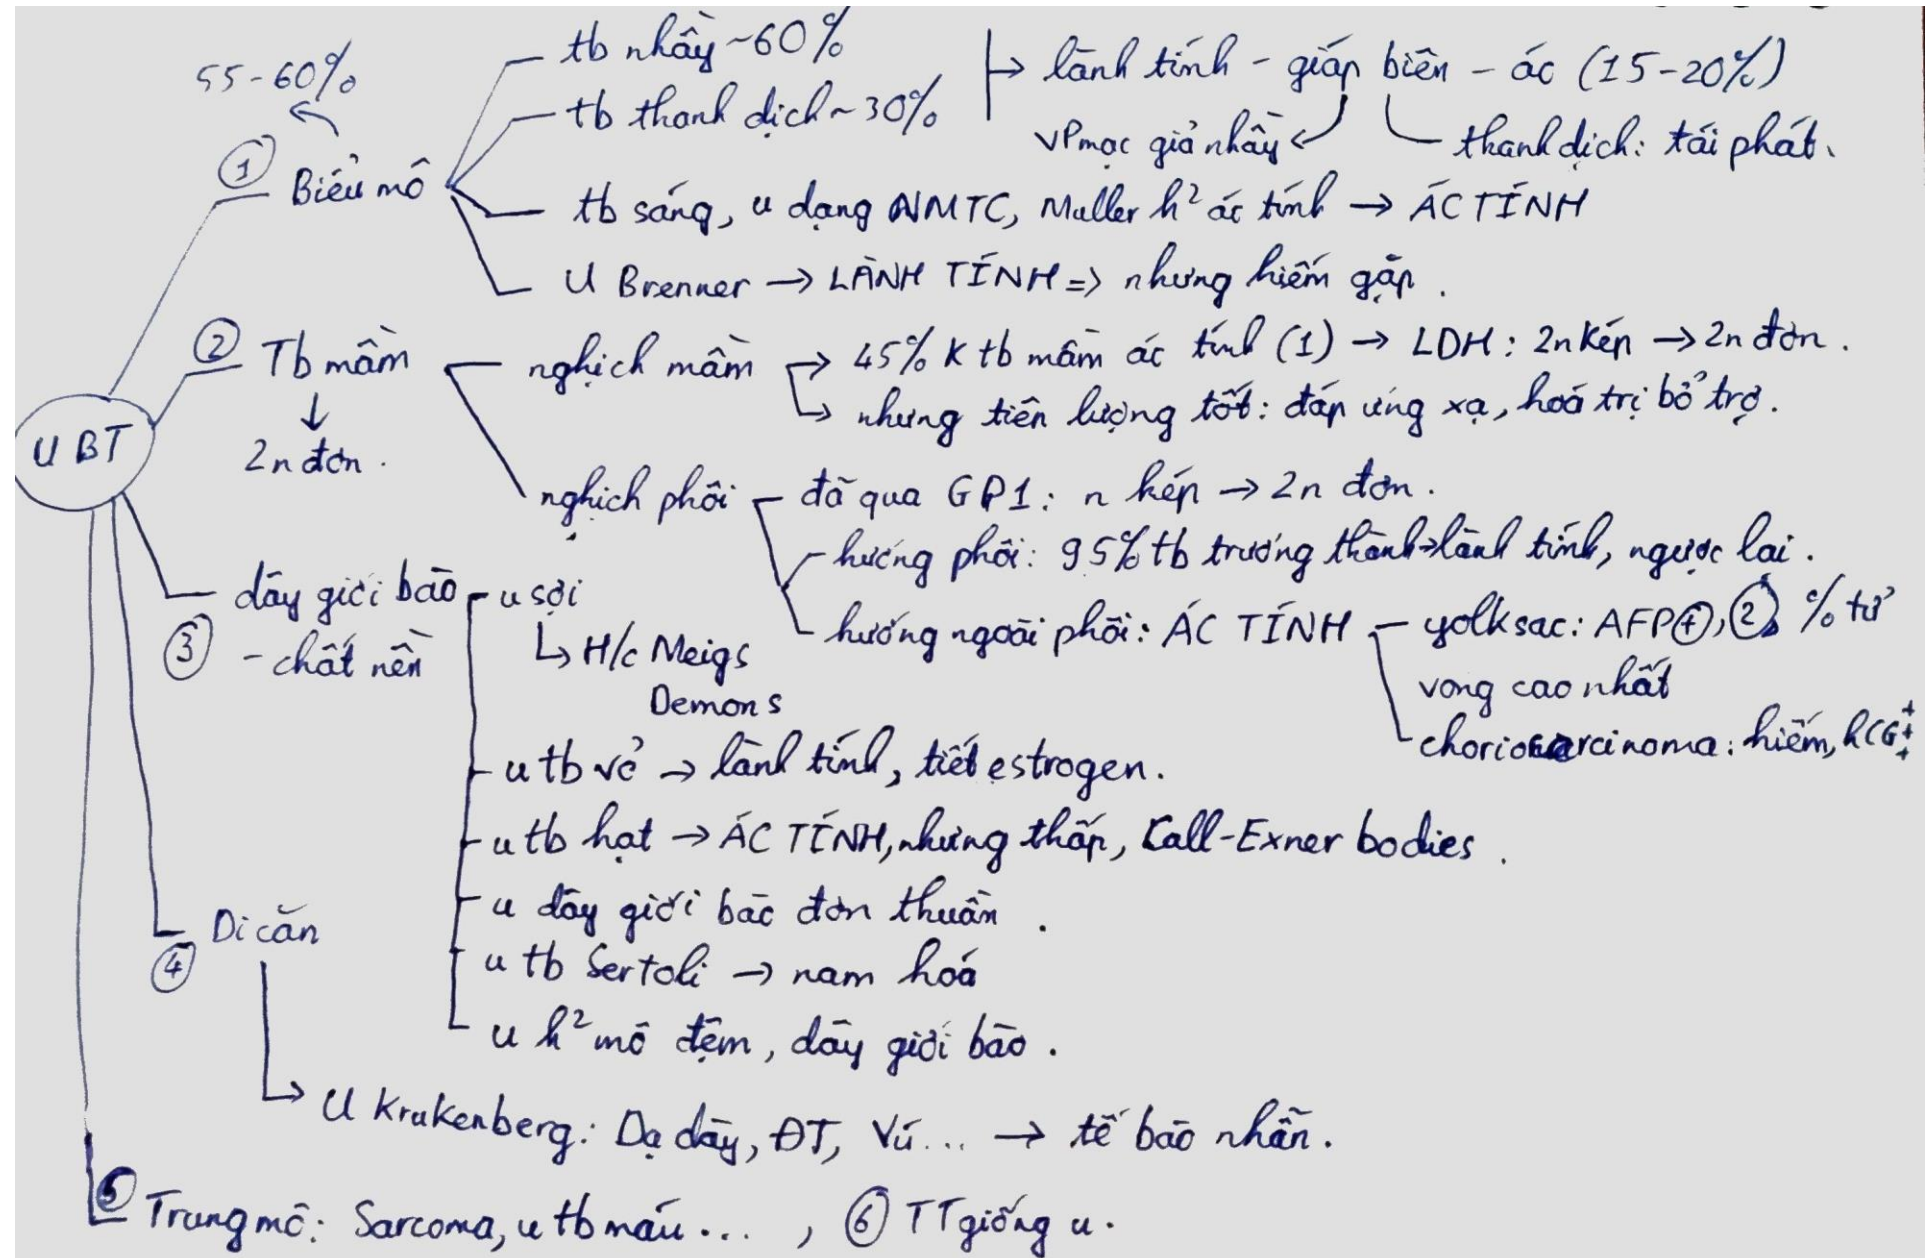 55-60%
① Biểu mô
tb nhầy ~60%
tb thanh dịch ~ 30%
→ lành tính - giáp biên - ác (15-20%)
VPmạc giả nhầy
thanh dịch: tái phát.
tb sáng, u dạng NMTC, Muller h² ác tính → ÁC TÍNH
U Brenner → LÀNH TÍNH => nhưng hiếm gặp.
UBT
② Tb mầm
↓
2n đơn.
nghịch mầm → 45% K tb mầm ác tính (1) → LDH: 2n kép → 2n đơn.
↳ nhưng tiên lượng tốt: đáp ứng xạ, hoá trị bổ trợ.
nghịch phôi
đã qua GP1: n kép → 2n đơn.
hướng phôi: 95% tb trưởng thành → lành tính, ngược lại.
hướng ngoài phôi: ÁC TÍNH
yolksac: AFP⊕, ②, % tử
vong cao nhất
choriocarcinoma: hiếm, hCG++
③ dây giới bào
- chất nền
u sợi
↳ H/c Meigs
Demons
u tb vỏ → lành tính, tiết estrogen.
u tb hạt → ÁC TÍNH, nhưng thấp, Call-Exner bodies.
u dây giới bào đơn thuần.
u tb Sertoli → nam hoá
u h² mô đệm, dây giới bào.
④ Di căn
→ U Krukenberg: Dạ dày, ĐT, Vú... → tế bào nhẫn.
⑤ Trung mô: Sarcoma, u tb máu ... , ⑥ TT giống u.